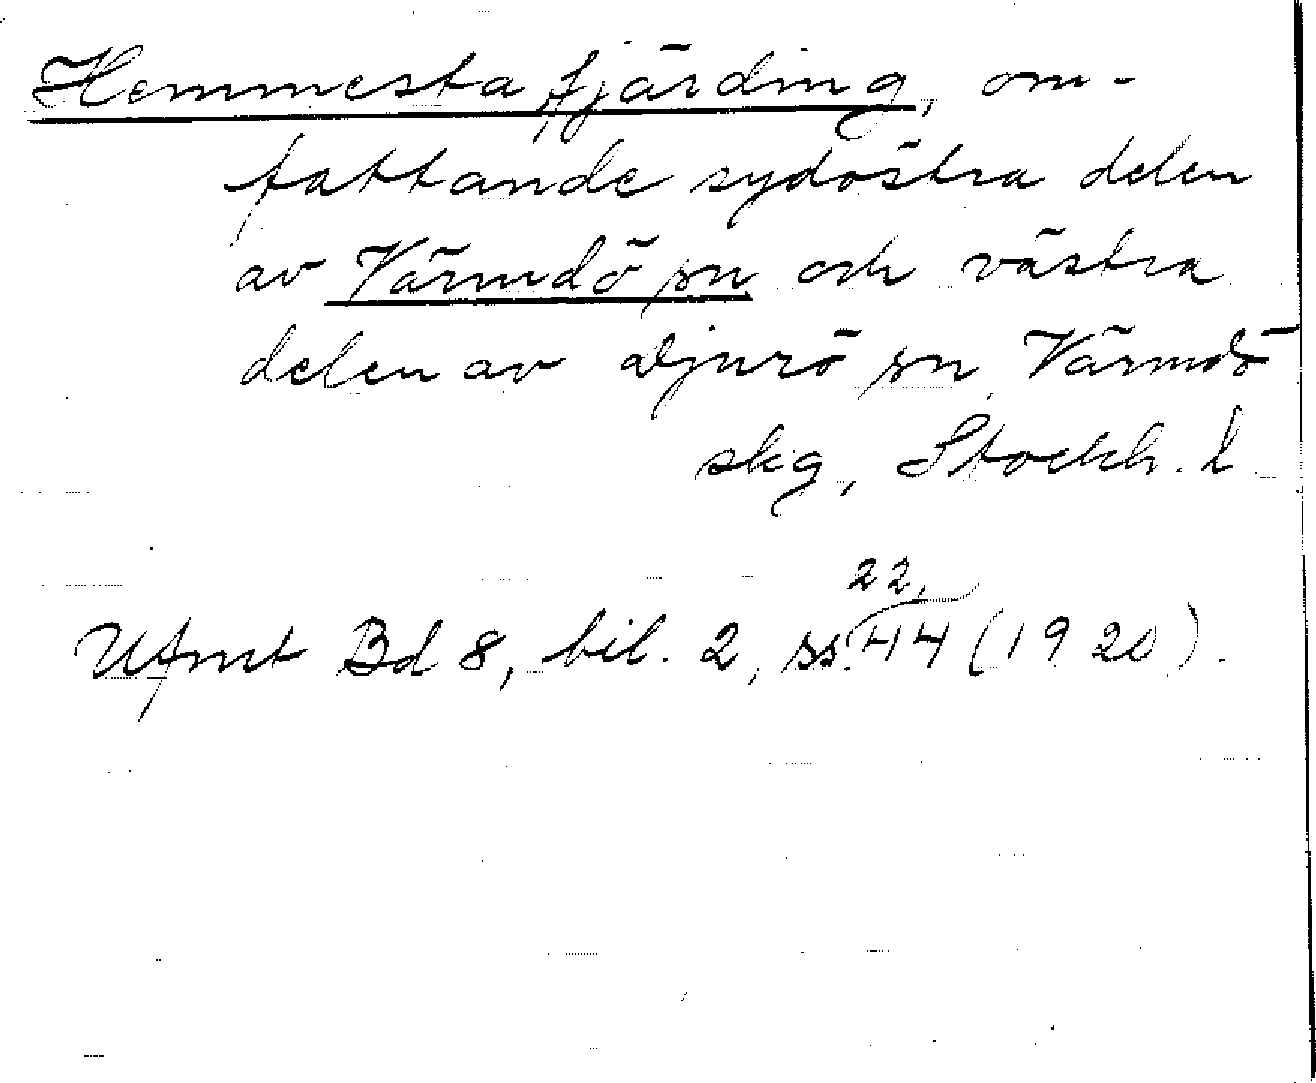 Hemmesta fjärding, om-
fattande sydöstra delen
av Värmdö sn och västra
delen av Djurö sn, Värmdö
skg, Stockh. l.
22,
Ufmt Bd 8, bil. 2, ss. 44 (1920).